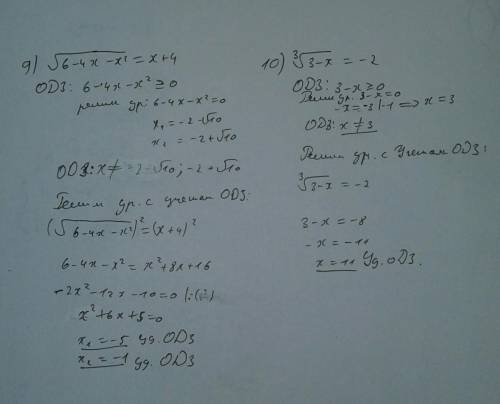 9) √(6-4x-x²) = x+4
ОДЗ: 6-4x-x² ≥ 0
решим ур: 6-4x-x²=0
x₁ = -2-√10
x₂ = -2+√10
ОДЗ: x ≠ -2-√10; -2+√10
Решим ур. с учетом ОДЗ:
(√(6-4x-x²))² = (x+4)²
6-4x-x² = x²+8x+16
-2x²-12x-10=0 |:(-2)
x²+6x+5=0
x₁ = -5 уд. ОДЗ
x₂ = -1 уд. ОДЗ
10) ∛(3-x) = -2
ОДЗ: 3-x ≥ 0
Решим ур. 3-x=0
-x=-3 |·-1 ⟹ x = 3
ОДЗ: x ≠ 3
Решим ур. с учетом ОДЗ:
∛(3-x) = -2
3-x = -8
-x = -11
x = 11 Уд. ОДЗ.